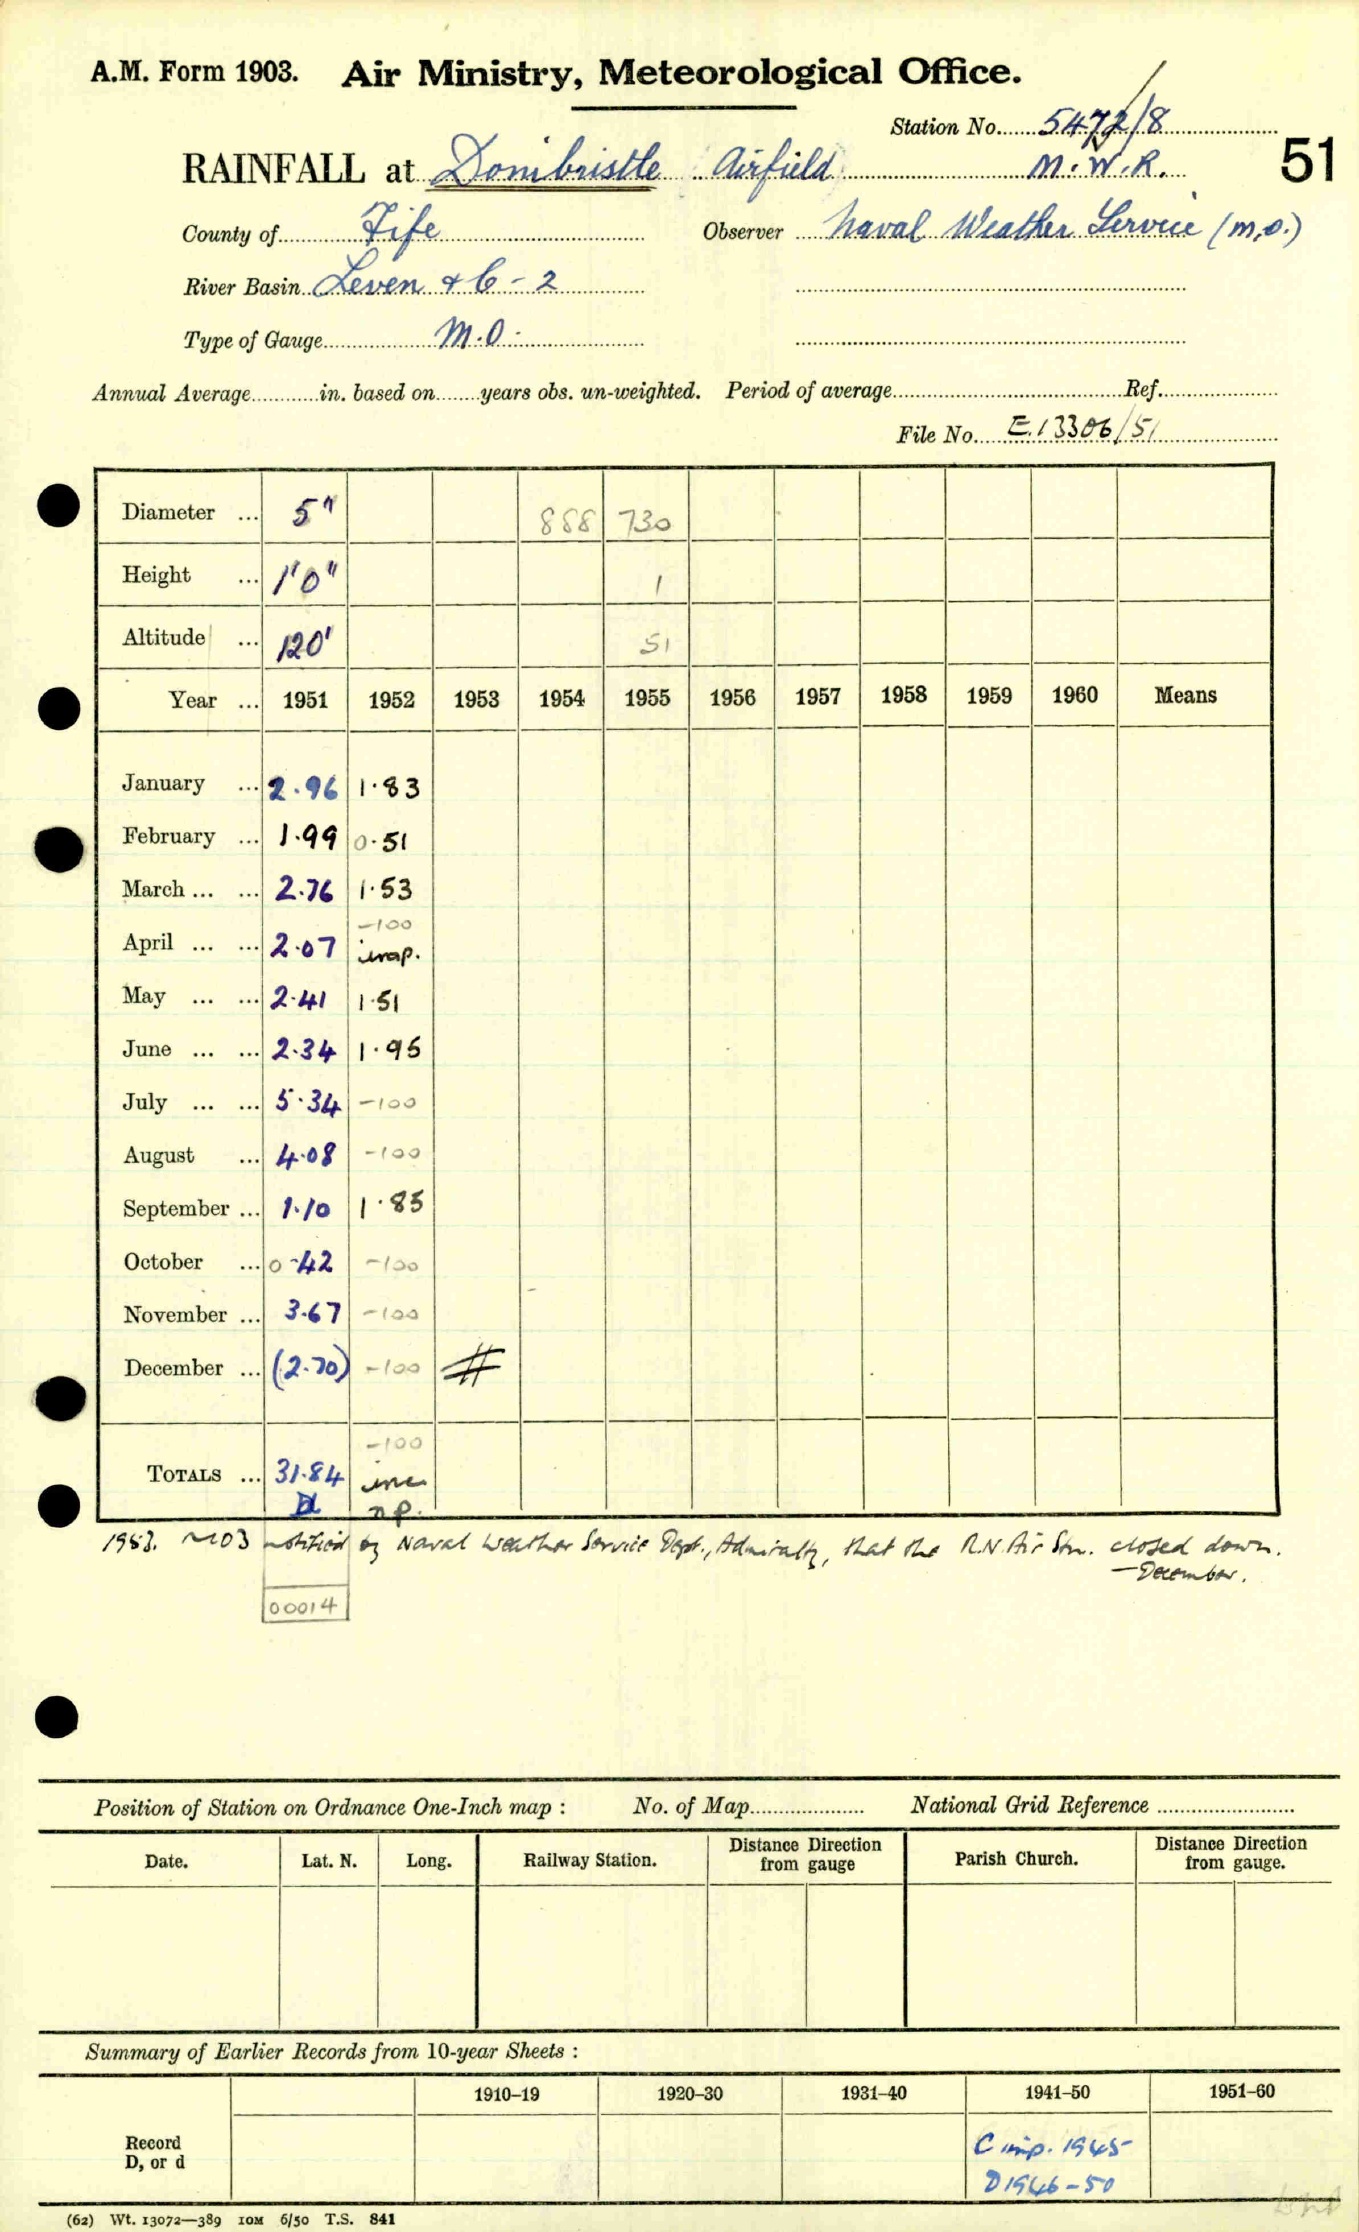 A.M. Form 1903. Air Ministry, Meteorological Office.
Station No. 5472/8
M.W.R. 51
RAINFALL at Donibristle Airfield
County of Fife Observer Naval Weather Service (M.O.)
River Basin Leven & C - 2
Type of Gauge M.O.
Annual Average in. based on years obs. un-weighted. Period of average Ref.
File No. E.13306/51
Diameter ... 5" 888 730
Height ... 1'0" 1
Altitude ... 120' 51
Year ... 1951 1952 1953 1954 1955 1956 1957 1958 1959 1960 Means
January ... 2.96 1.83
February ... 1.99 0.51
March ... ... 2.76 1.53
-100
April ... ... 2.07
May ... ... 2.41 1.51
June ... ... 2.34 1.95
July ... ... 5.34 -100
August ... 4.08 -100
September ... 1.10 1.85
October ... 0.42 -100
November ... 3.67 -100
December ... (2.70) -100 #
-100
TOTALS ... 31.84 inc
n.p.
1953. notified by Naval Weather Service Dept., Admiralty, that the R.N Air Stn. closed down.
- December.
00014
Position of Station on Ordnance One-Inch map : No. of Map National Grid Reference
Date. Lat. N. Long. Railway Station. Distance Direction from gauge Parish Church. Distance Direction from gauge.
Summary of Earlier Records from 10-year Sheets :
1910–19 1920–30 1931–40 1941–50 1951–60
Record
D, or d
C inp. 1945
D 1946-50
(62) Wt. 13072—389 10M 6/50 T.S. 841